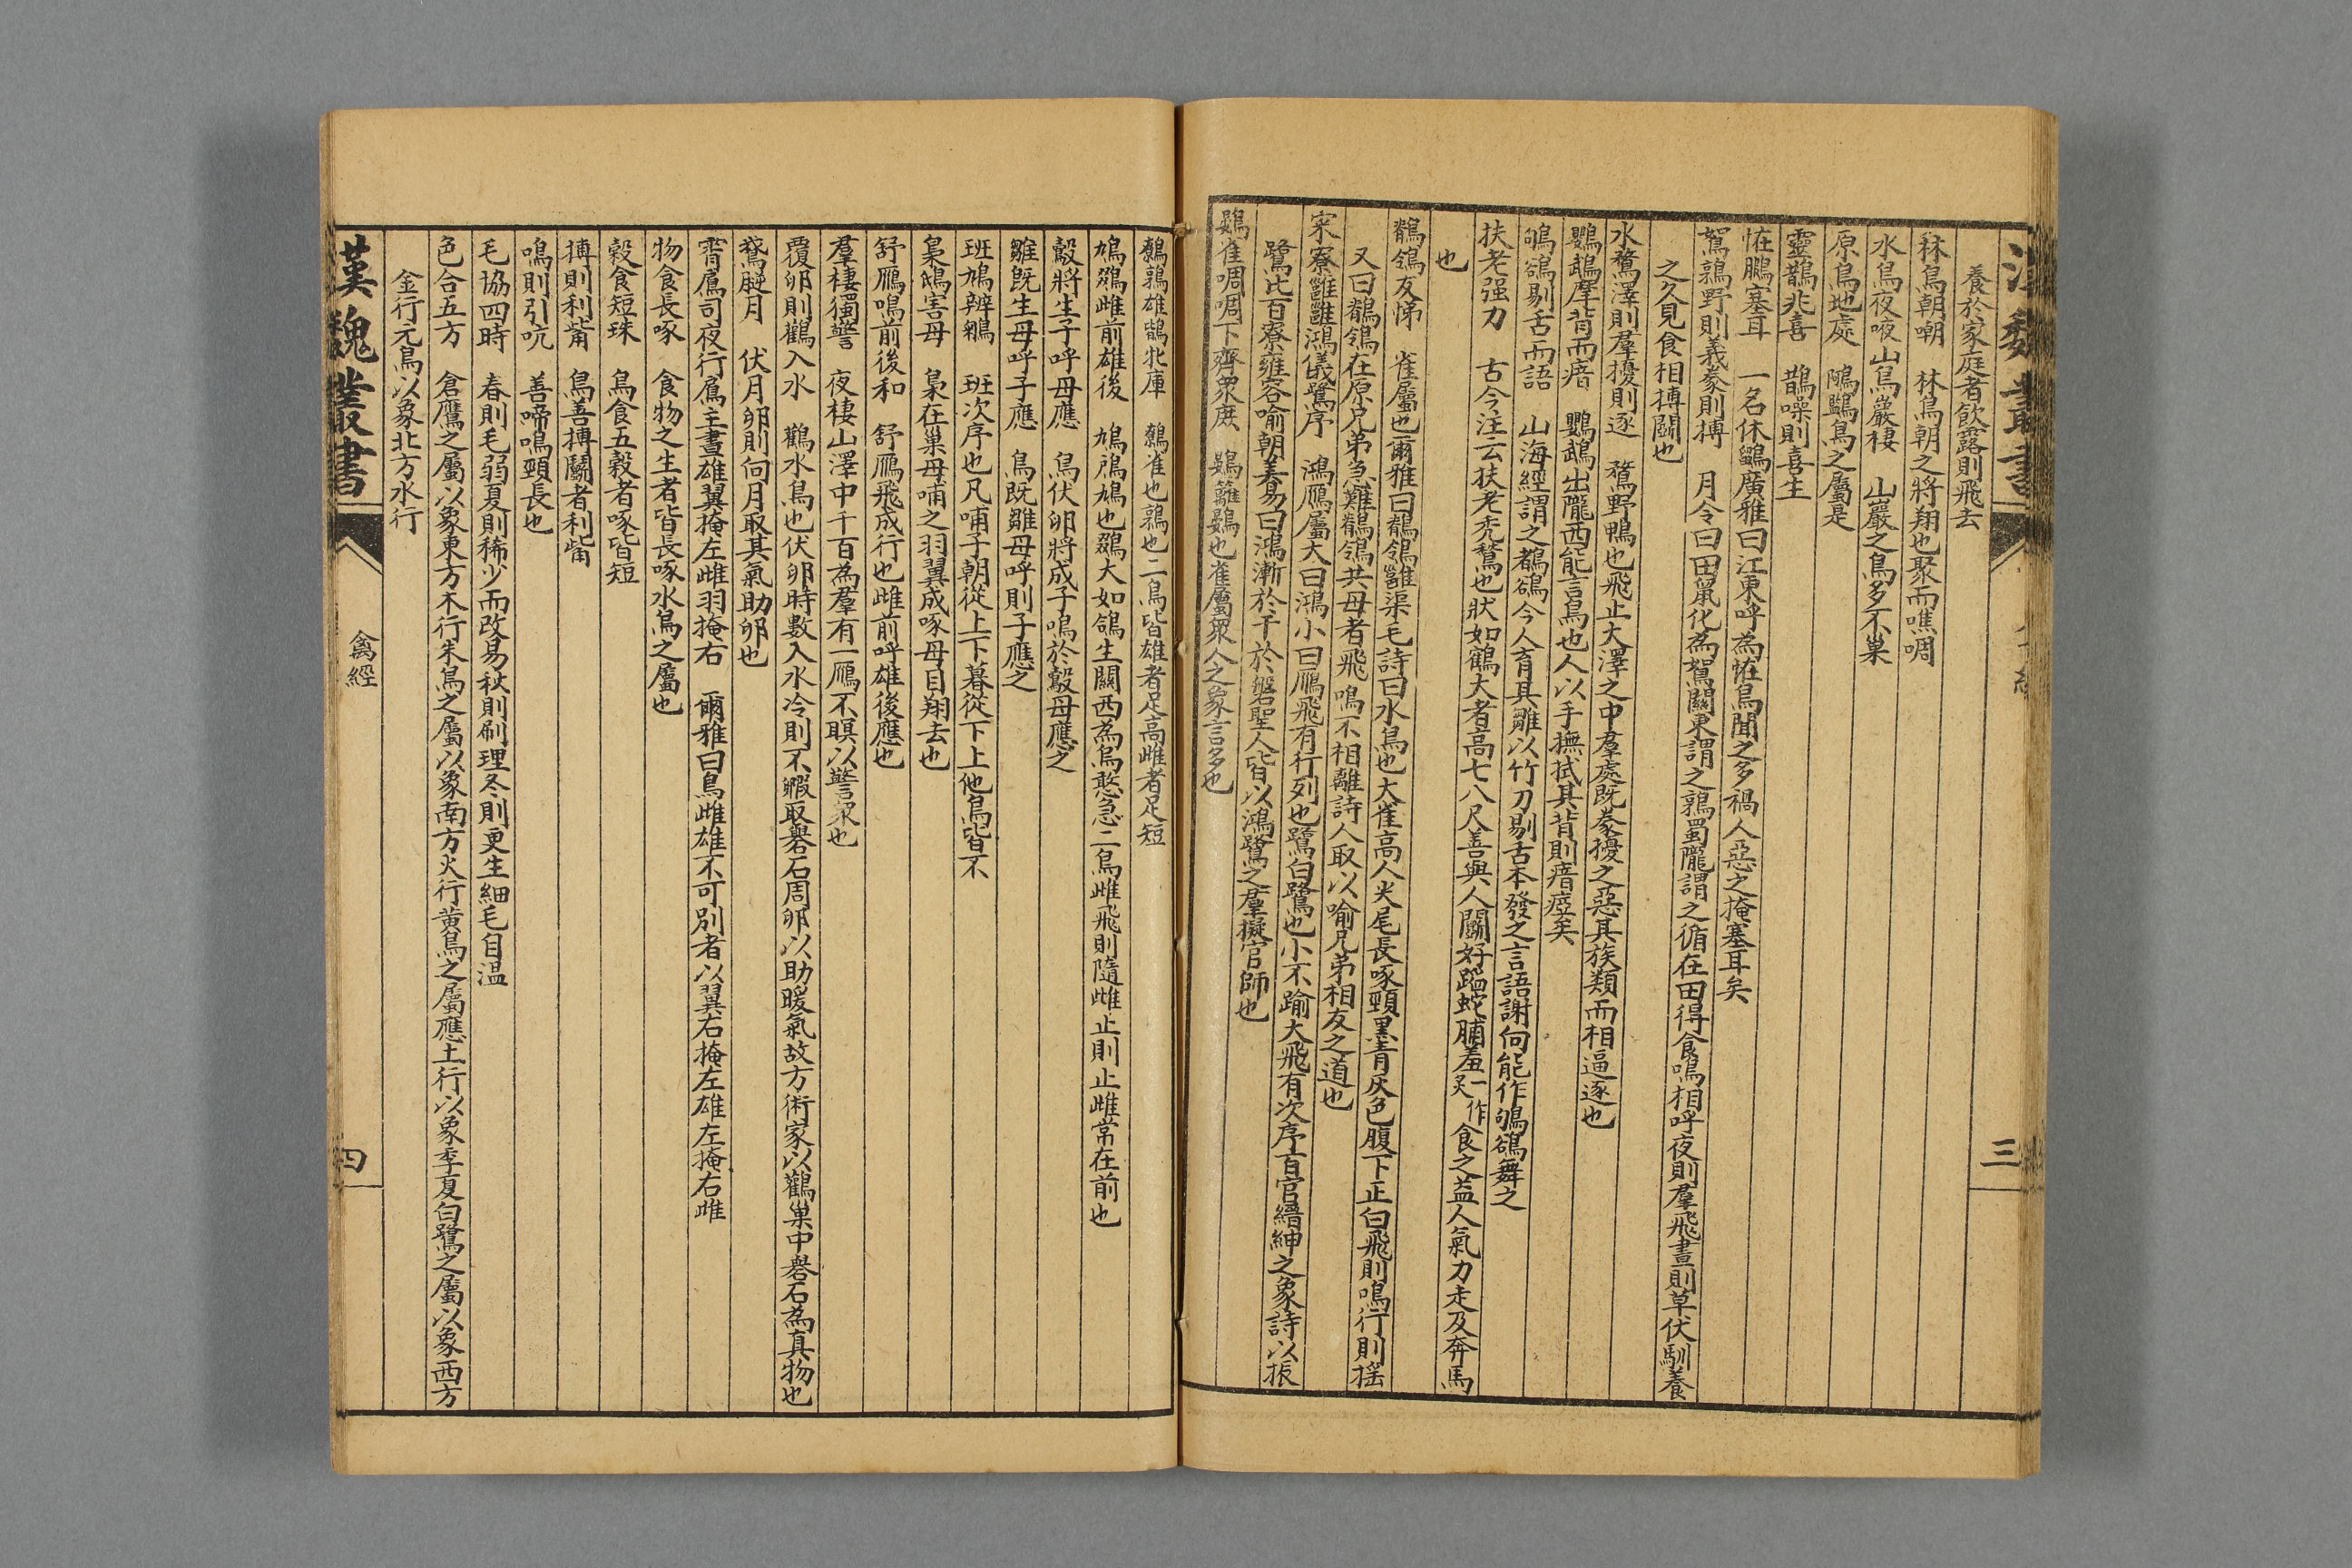 漢魏叢書
三
養於家庭者飲露則飛去
林鳥朝嘲　林鳥朝之將翔也聚而噍啁
水鳥夜㖡山鳥巖棲　山巖之鳥多不巢
原鳥地處　鴳鷃鳥之屬是
靈鵲兆喜　鵲噪則喜生
恠鵩塞耳　一名休鶹廣雅曰江東呼為恠鳥聞之多禍人惡之掩塞耳矣
鴽鶉野則義豢則搏　月令曰田鼠化為鴽關東謂之鶉蜀隴謂之循在田得食鳴相呼夜則羣飛晝則草伏馴養
之久見食相搏鬭也
水鶩澤則羣擾則逐　鶩野鴨也飛止大澤之中羣處既豢擾之惡其族類而相逼逐也
鸚鵡摩背而瘖　鸚鵡出隴西能言鳥也人以手撫拭其背則瘖瘂矣
鴝鵒剔舌而語　山海經謂之鸜鵒今人育其雛以竹刀剔舌本發之言語謝尚能作鴝鵒舞之
扶老强力　古今注云扶老禿鶖也狀如鶴大者高七八尺善與人鬭好啗蛇脯羞一作炙食之益人氣力走及奔馬
也
鶺鴒友悌　雀屬也爾雅曰鶺鴒雝渠毛詩曰水鳥也大雀高人尖尾長啄頸黑青灰色腹下正白飛則鳴行則摇
又曰鶺鴒在原兄弟急難鶺鴒共母者飛鳴不相離詩人取以喻兄弟相友之道也
宷寮雝雝鴻儀鷺序　鴻鴈屬大曰鴻小曰鴈飛有行列也鷺白鷺也小不踰大飛有次序百官縉紳之象詩以振
鷺比百寮雍容喻朝美易曰鴻漸於干於磐聖人皆以鴻鷺之羣擬官師也
鷃雀啁啁下齊眾庶　鷃籬鷃也雀屬眾人之象言多也
鷯鶉雄鵲牝庳　鷯雀也鶉也二鳥皆雄者足高雌者足短
鳩鷄雌前雄後　鳩鳲鳩也鷄大如鴿生關西為鳥憨急二鳥雌飛則隨雌止則止雌常在前也
鷇將生子呼母應　鳥伏卵將成子鳴於鷇母應之
雛既生母呼子應　鳥既雛母呼則子應之
班鳩辨鵴　班次序也凡哺子朝從上下暮從下上他鳥皆不
梟鴟害母　梟在巢母哺之羽翼成啄母目翔去也
舒鴈鳴前後和　舒鴈飛成行也雌前呼雄後應也
羣棲獨警　夜棲山澤中千百為羣有一鴈不瞑以警眾也
覆卵則鸛入水　鸛水鳥也伏卵時數入水冷則不毈取礜石周卵以助暖氣故方術家以鸛巢中礜石為真物也
鵞䏶月　伏月卵則向月取其氣助卵也
霄鳸司夜行鳸主晝雄翼掩左雌羽掩右　爾雅曰鳥雌雄不可別者以翼右掩左雄左掩右雌
物食長啄　食物之生者皆長啄水鳥之屬也
穀食短咮　鳥食五穀者啄皆短
搏則利觜　鳥善搏鬭者利觜
鳴則引吭　善啼鳴頸長也
毛協四時　春則毛弱夏則稀少而改易秋則刷理冬則更生細毛自溫
色合五方　倉鷹之屬以象東方木行朱鳥之屬以象南方火行黄鳥之屬應土行以象季夏白鷺之屬以象西方
金行元鳥以象北方水行
漢魏叢書
禽經
四